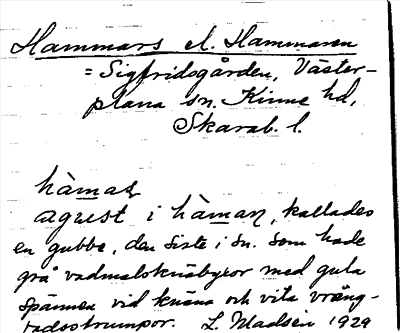 Hammars el. Hammaren
= Sigfridsgården, Väster-
plana sn. Kinne hd,
Skarab. l.
hàmaʂ
agust i hàman, kallades
en gubbe, den siste i sn. som hade
grå vadmalsknäbyxor med gula
spännen vid knäna och vita vräng-
vadsstrumpor. L. Madsén 1929